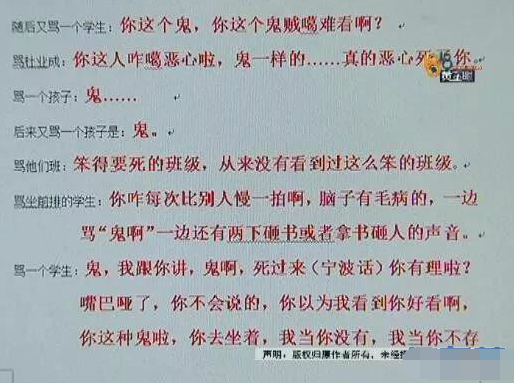 随后又骂一个学生：你这个鬼，你这个鬼贼噶难看啊？
骂杜业成：你这人咋噶恶心啦，鬼一样的……真的恶心死 你。
骂一个孩子：鬼……
后来又骂一个孩子是：鬼。
骂他们班：笨得要死的班级，从来没有看到过这么笨的班级。
骂坐前排的学生：你咋每次比别人慢一拍啊，脑子有毛病的，一边
骂“鬼啊”一边还有两下砸书或者拿书砸人的声音。
骂一个学生：鬼，我跟你讲，鬼啊，死过来（宁波话）你有理啦？
嘴巴哑了，你不会说的，你以为我看到你好看啊，
你这种鬼啦，你去坐着，我当你没有，我当你不存
声明：版权归原作者所有，未经